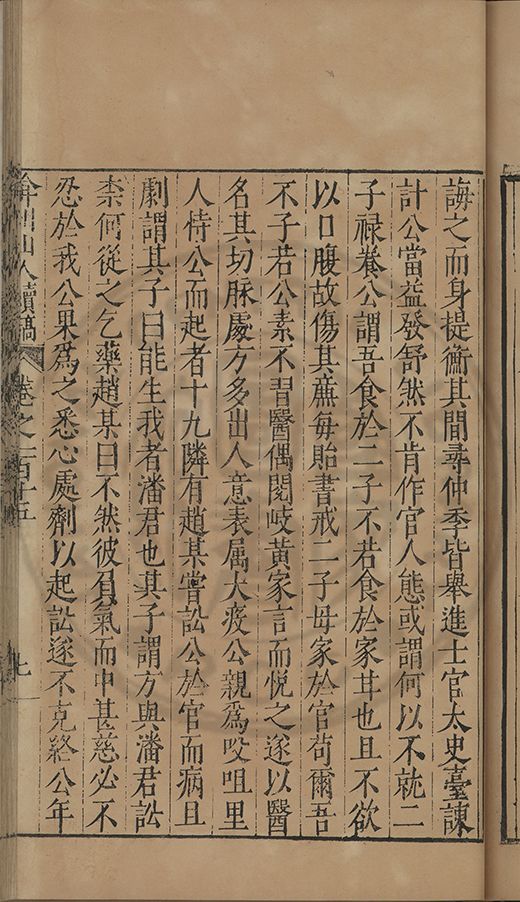 誨之而身提衡其間尋仲季皆舉進士官太史臺諫
計公當益發舒然不肯作官人態或謂何以不就二
子祿養公謂吾食於二子不若食於家甘也且不欲
以口腹故傷其廉每貽書戒二子毋家於官茍爾吾
不子若公素不習醫偶閱岐黃家言而悅之遂以醫
名其切脉處方多出人意表属大疫公親爲㕮咀里
人恃公而起者十九隣有趙某嘗訟公於官而病且
劇謂其子曰能生我者潘君也其子謂方與潘君訟
柰何從之乞藥趙某曰不然彼負氣而中甚慈必不
忍於我公果爲之悉心處劑以起訟遂不克終公年
弇州山人續稿 卷之一百十五 七